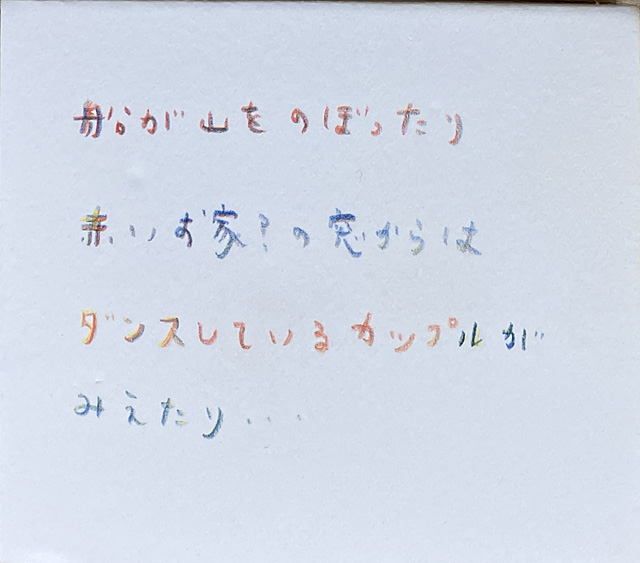 船が山をのぼったり
赤いお家?の窓からは
ダンスしているカップルが
みえたり...